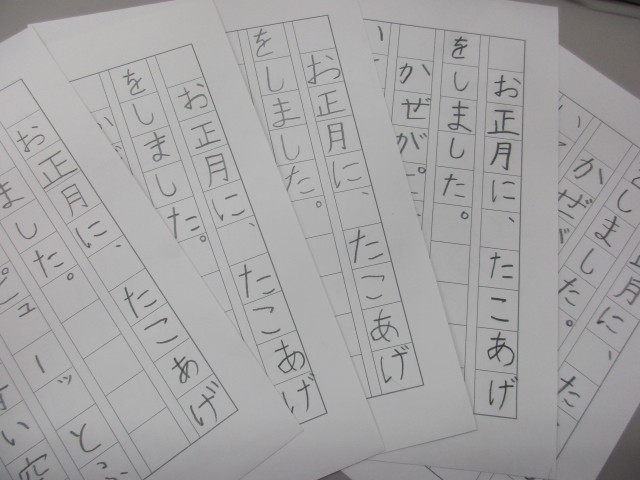 お正月に、たこあげ
をしました。
かぜがぴ
お正月に、たこあげ
をしました。
お正月に、たこあげ
をしました。
お正月に、たこあげ
ました。
ピューッとふ
い空
正月に、た
しました。
かぜが